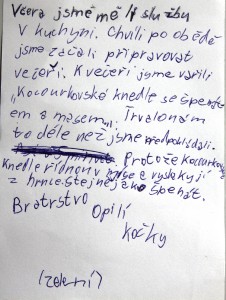 Včera jsme měli službu
v kuchyni. Chvíli po obědě
jsme začali připravovat
večeři. K večeři jsme vařili
"Kocourkovské knedle se špenát
em a masem". Trvalo nám
to déle než jsme předpokládali.
Protože Kocourkovy
knedle řídnou v míse a vyskakují
z hrnce. Stejně jako špenát.
Bratrstvo
Opilí
kočky
(zelení)